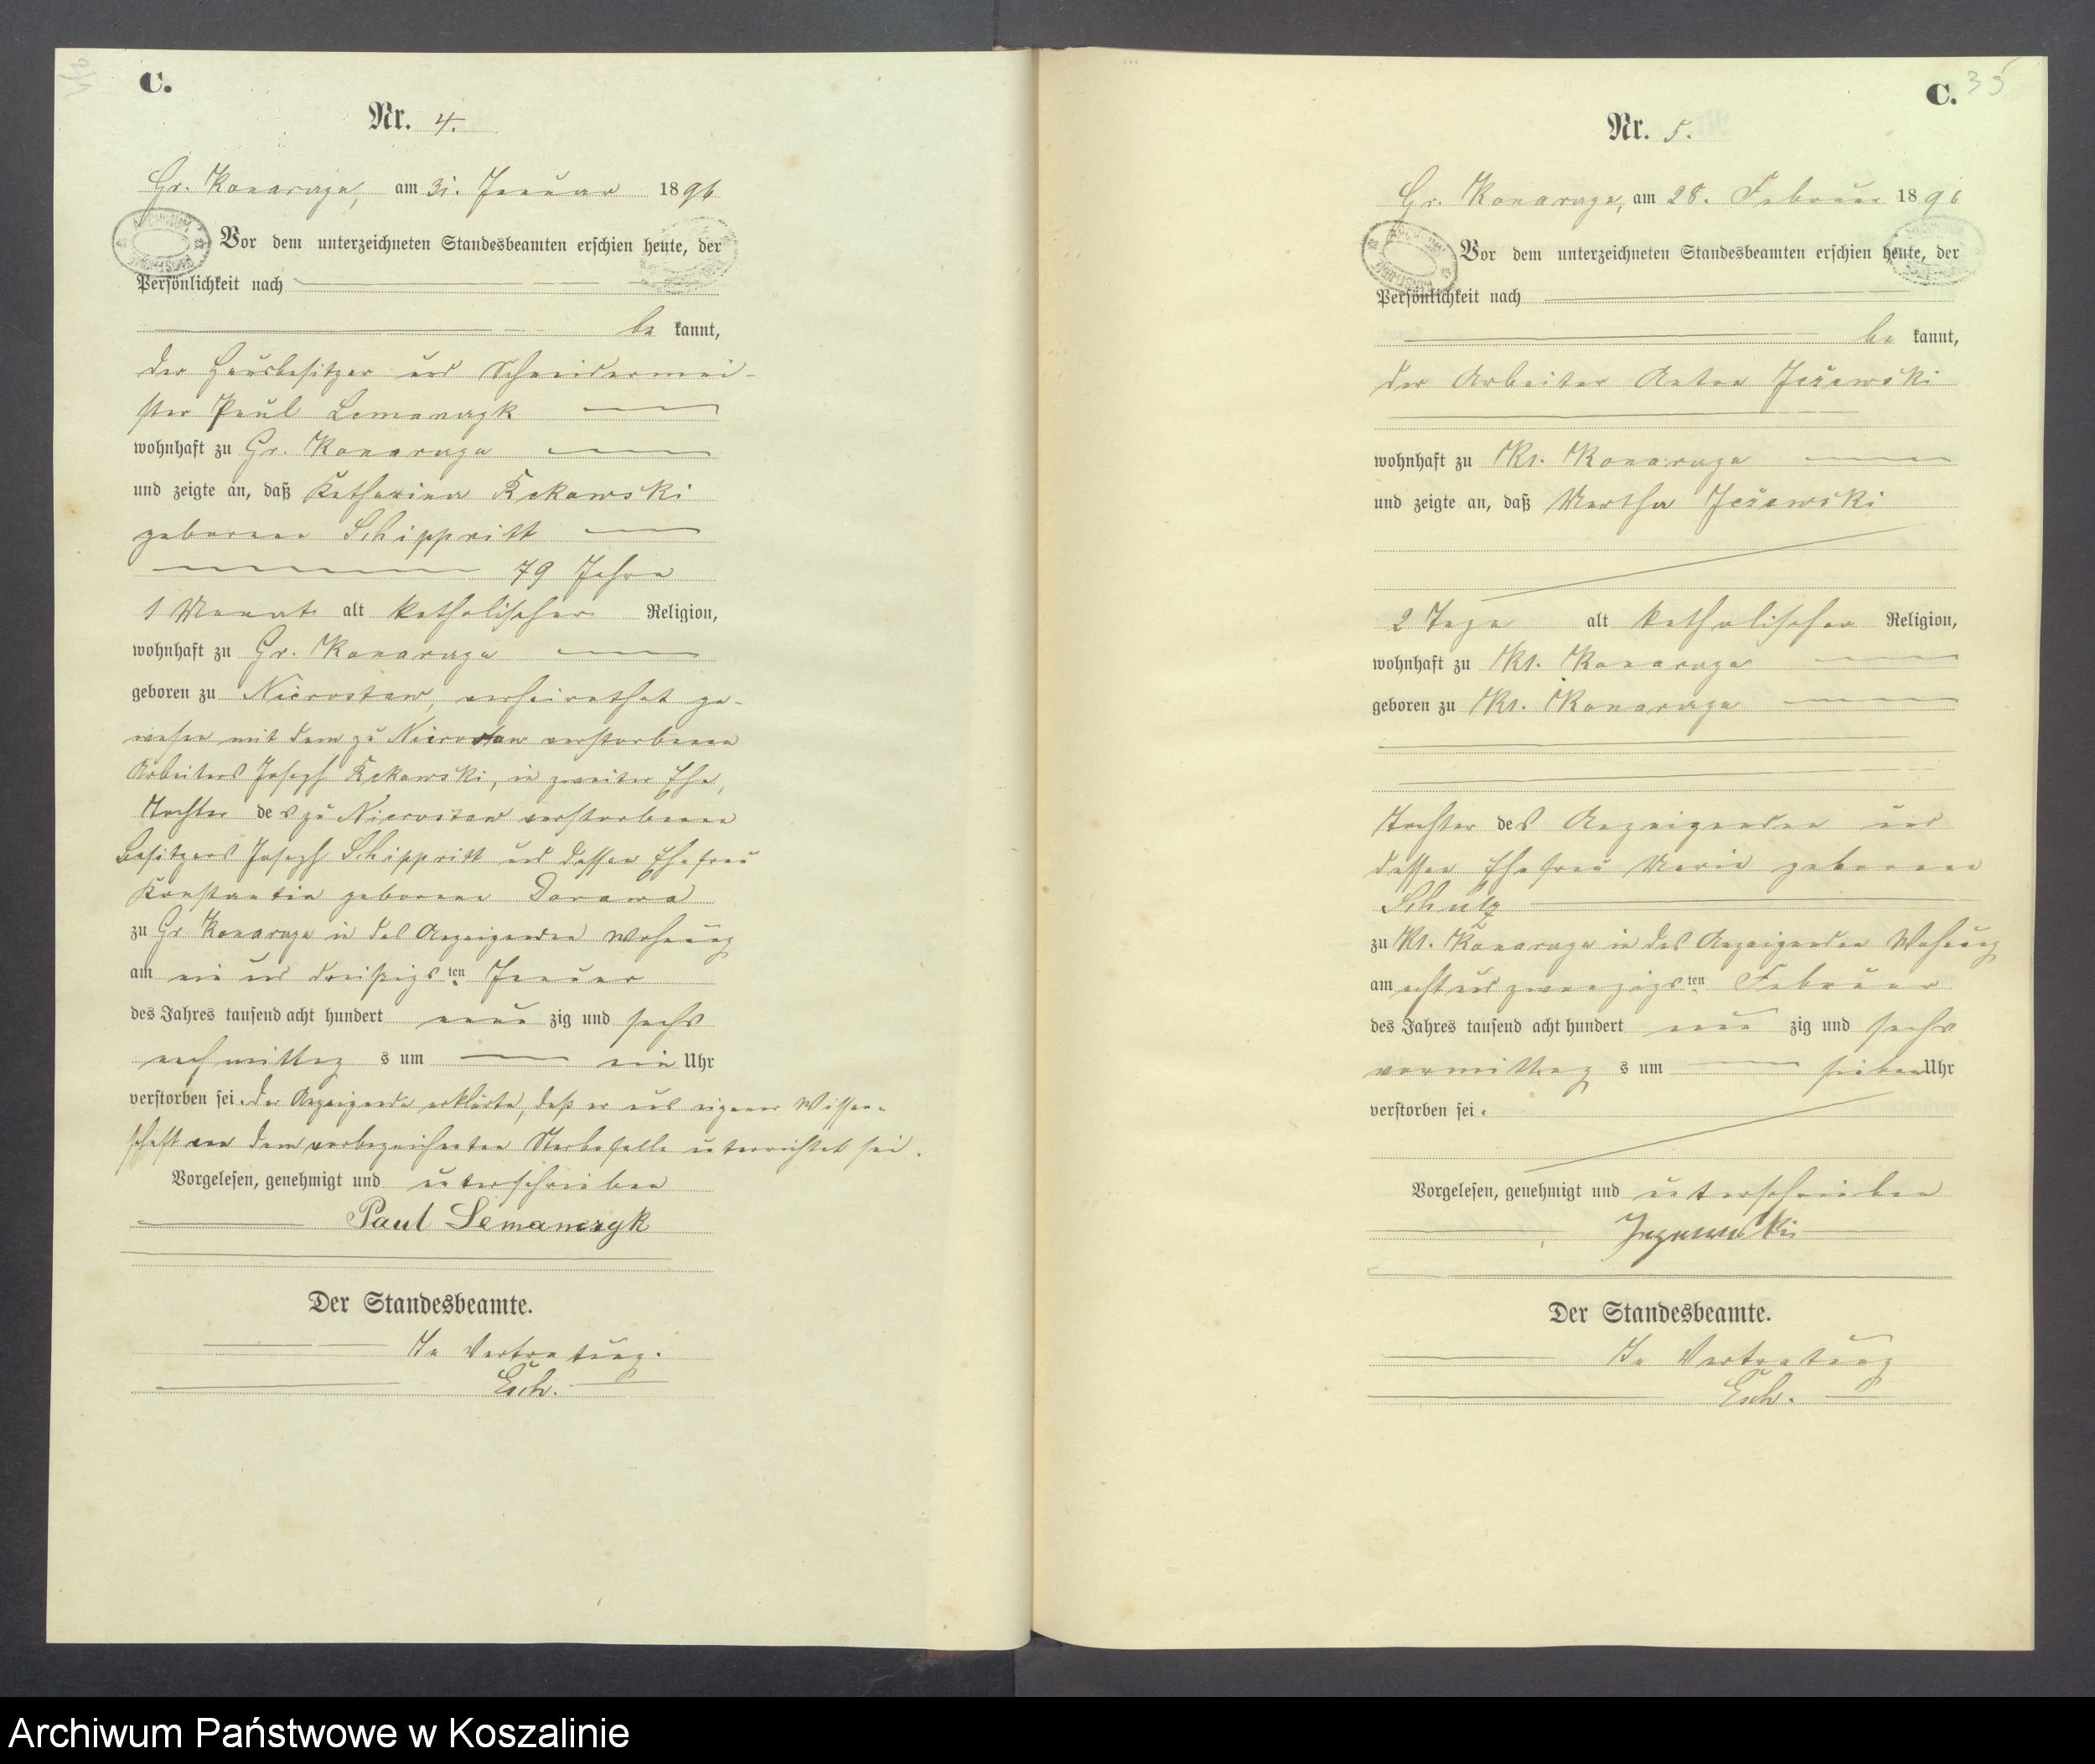 C.
Nr. 4.
Gr. Konarczyn, am 31. Januar 1896
Vor dem unterzeichneten Standesbeamten erschien heute, der
Persönlichkeit nach
be kannt,
der Hausbesitzer und Schneidermei-
ster Paul Lemanczyk
wohnhaft zu Gr. Konarczyn
und zeigte an, daß Katharina Rekowski
geborene Schippritt
79 Jahre
1 Monat alt katholischer Religion,
wohnhaft zu Gr. Konarczyn
geboren zu Nierostaw, verheirathet ge-
wesen mit dem zu Nierostaw verstorbenen
Arbeiters Joseph Rekowski, in zweiter Ehe,
Tochter des zu Nierostaw verstorbenen
Besitzers Joseph Schippritt und dessen Ehefrau
Konstantia geborene Darawa
zu Gr Konarczyn in des Anzeigenden Wohnung
am ein und dreißigsten Januar
des Jahres tausend acht hundert neun zig und sechs
nachmittag s um ein Uhr
verstorben sei. Der Anzeigende erklärte, daß er aus eigener Wissen-
schaft von dem vorbezeichneten Sterbefalle unterrichtet sei.
Vorgelesen, genehmigt und unterschrieben
Paul Lemanczyk
Der Standesbeamte.
In Vertretung.
Esch.
C. 35
Nr. 5.
Gr. Konarczyn, am 28. Februar 1896
Vor dem unterzeichneten Standesbeamten erschien heute, der
Persönlichkeit nach
be kannt,
der Arbeiter Anton Jeżewski
wohnhaft zu Kl. Konarczyn
und zeigte an, daß Martha Jeżewski
2 Tage alt katholischer Religion,
wohnhaft zu Kl. Konarczyn
geboren zu Kl. Konarczyn
Tochter des Anzeigenden und
dessen Ehefrau Marie geborene
Schulz
zu Kl. Konarczyn in des Anzeigenden Wohnung
am acht und zwanzigsten Februar
des Jahres tausend acht hundert neun zig und sechs
vormittag s um sieben Uhr
verstorben sei.
Vorgelesen, genehmigt und unterschrieben
Der Standesbeamte.
In Vertretung
Esch.
Archiwum Państwowe w Koszalinie